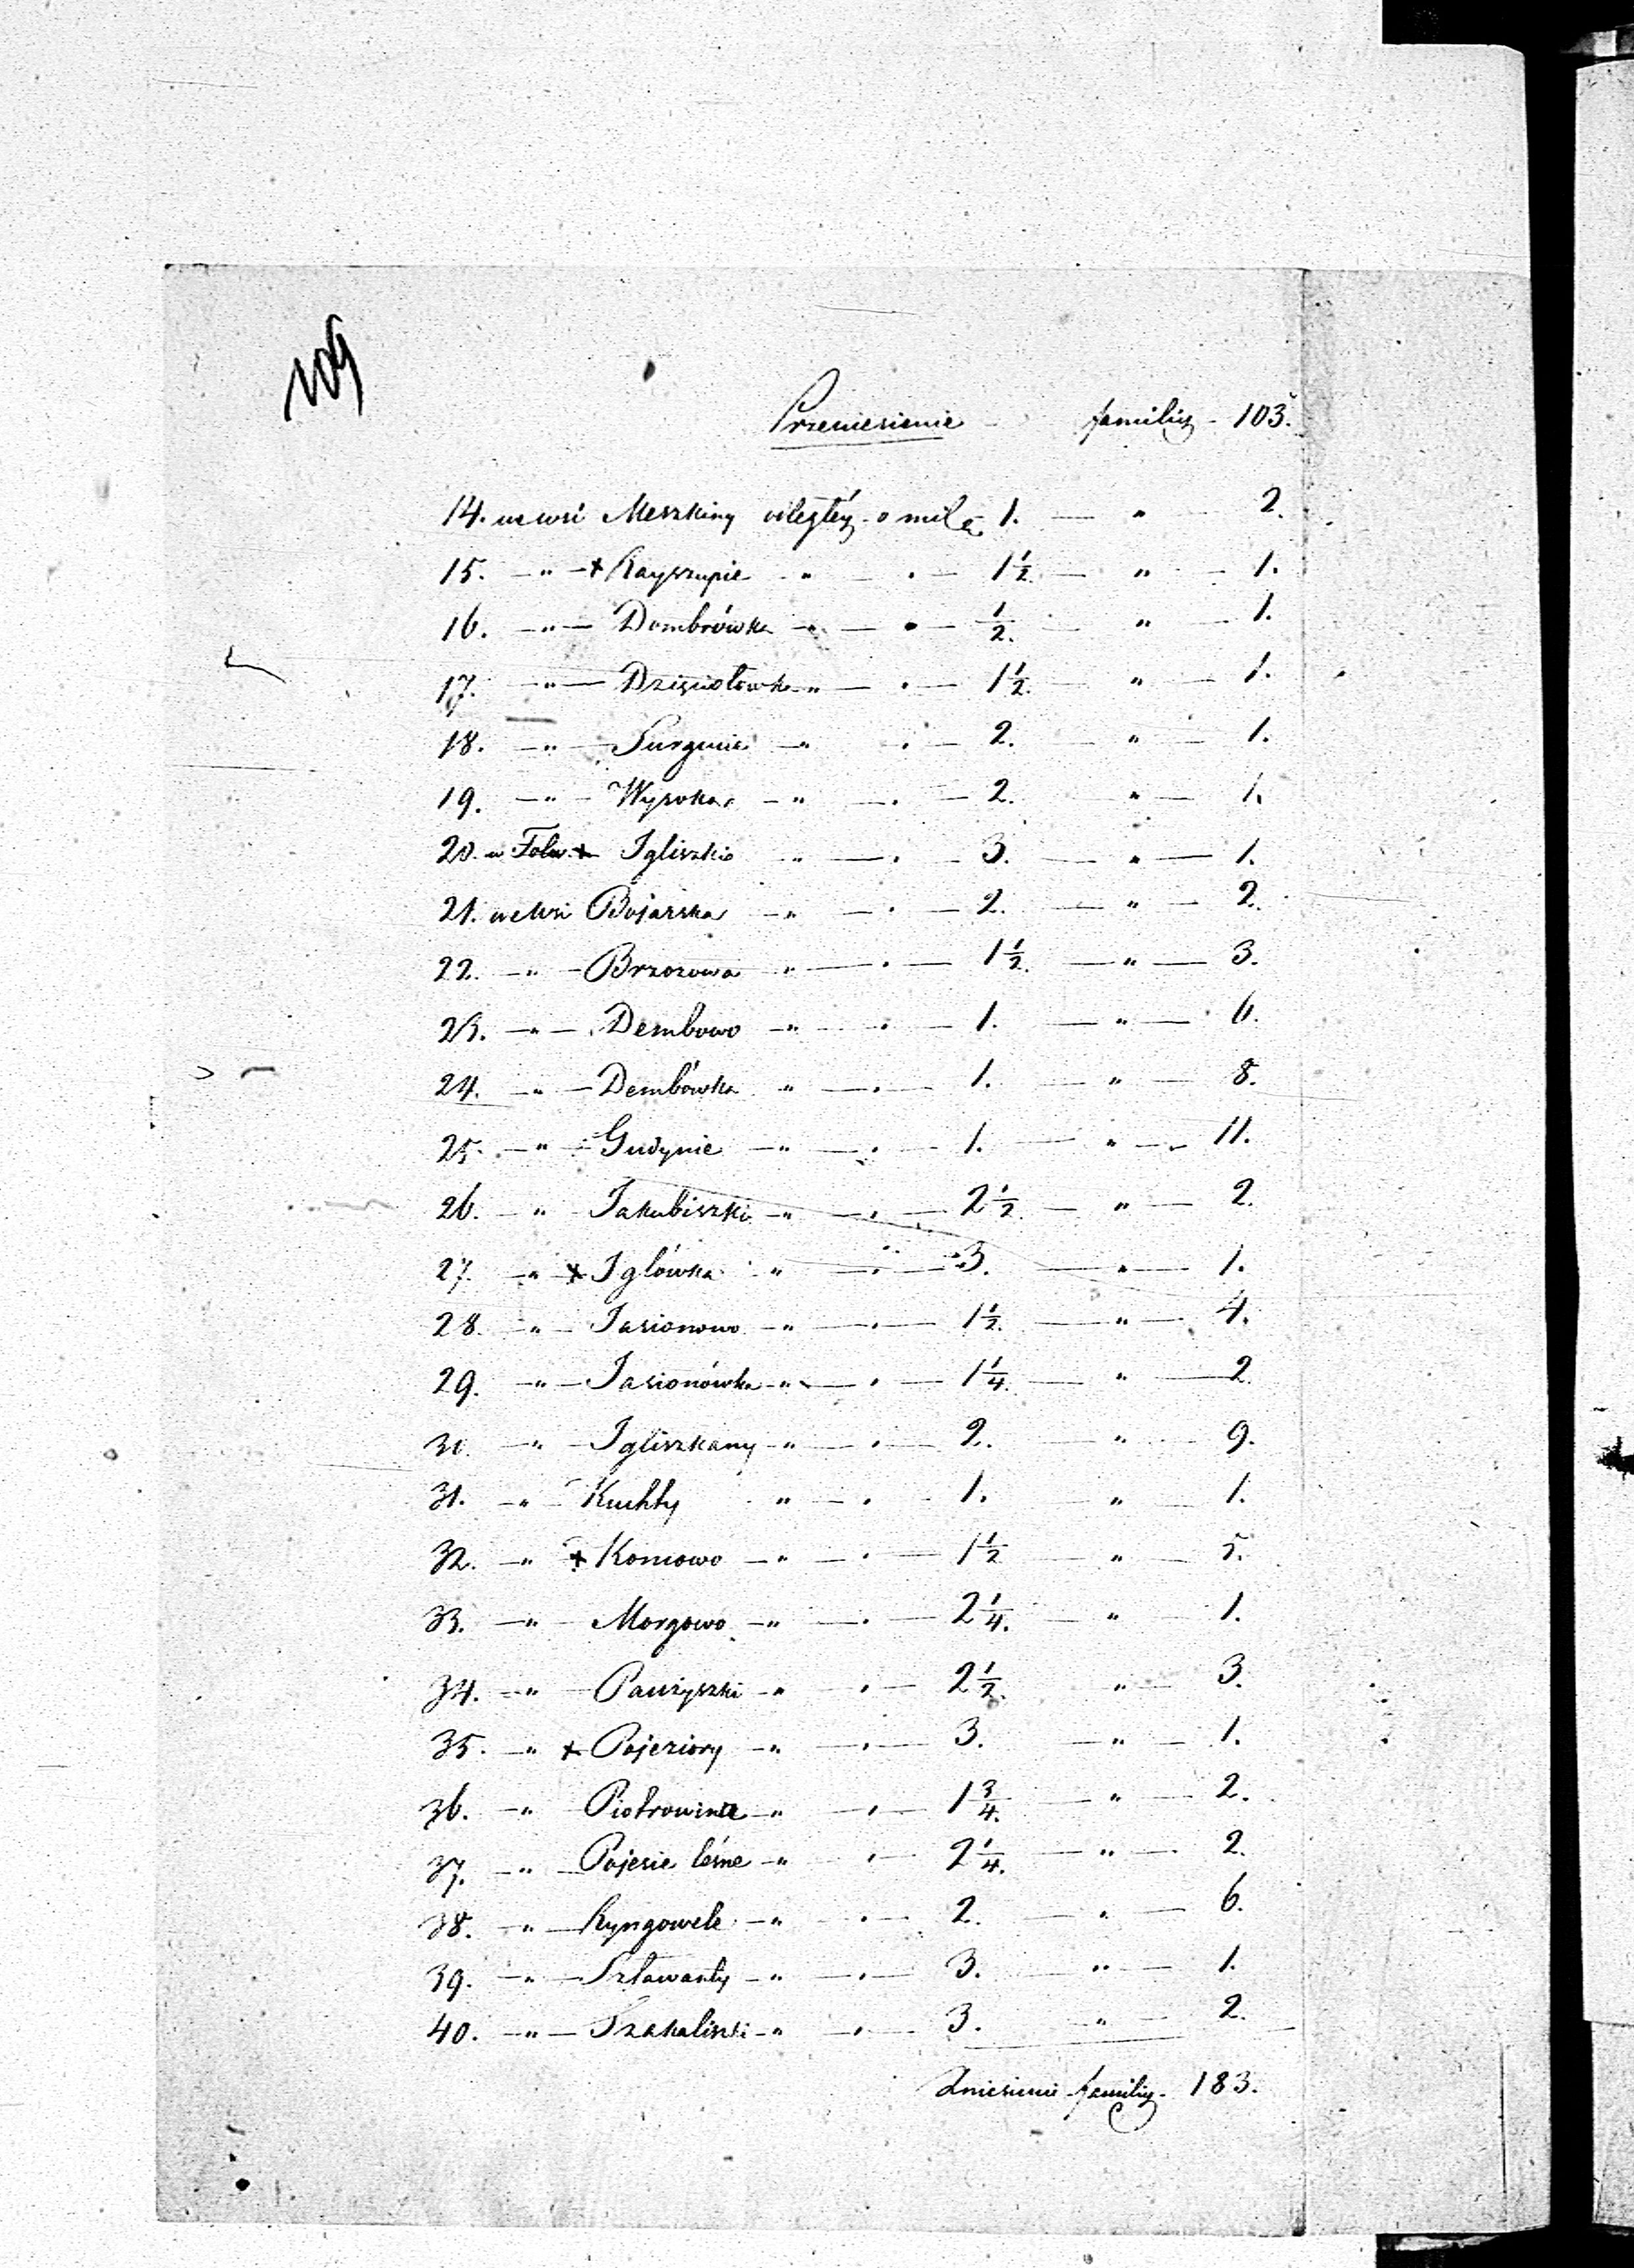 109
Przeniesienie - familiy - 103.
14. we wsi Meszkiny odległéy - o milę 1. — " 2.
15. — " — + Rayszupie " — . — 1 1/2. — " — 1.
16. — " — Dombrówka — " — . — 1/2. — " — 1.
17. — " — Dzięciołowka — " — . — 1 1/2. — " — 1.
18. — " — Surgucie — " . — 2. — " — 1.
19. — " — Wysoka — " — . — 2. " — 1.
20. w Folw. + Igliszkie " — . — 3. — " — 1.
21. we wsi Bojarska — " — . — 2. — " — 2.
22. — " — Brzozowa " — . — 1 1/2. — " — 3.
23. — " — Dembowo — " — . — 1. — " — 6.
24. — " — Dembówka " — . — 1. — " — 8.
25. — " — Gudynie — " — . — 1. — " — 11.
26. — " — Jakubiszki — " — . — 2 1/2. — " — 2.
27. — " + Iglówka " — . — 3. — " — 1.
28. — " — Jasionowo — " — . — 1 1/2. — " — 4.
29. — " — Jasionówka — " — . — 1 1/4. — " — 2.
30. — " — Igliszkany — " — . — 2. — " — 9.
31. — " — Kuchty " — . — 1. " — 1.
32. — " + Koniowo — " — . — 1 1/2 — " — 5.
33. — " — Morgowo — " — . — 2 1/4. — " — 1.
34. — " — Pauzyszki — " . — 2 1/2. " — 3.
35. — " + Pojeziory — " — . — 3. — " — 1.
36. — " Piotrowinie — " . — 1 3/4. — " — 2.
37. — " — Pojesie leśne — " — . — 2 1/4. — " — 2.
38. — " — Ryngowele — " — . — 2. — " — 6.
39. — " — Szławanty — " — . — 3. — " — 1.
40. — " — Szakaliszki — " — . — 3. — " — 2.
Zniesienie familiy - 183.